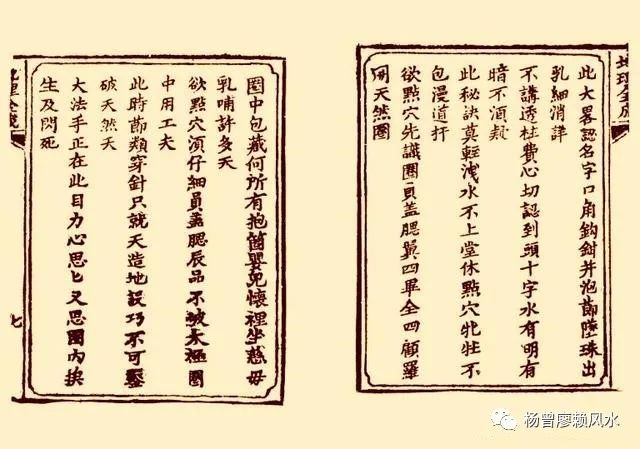 此大畧認名字口角鈎鉗并泡節墜珠出
乳細消詳
不講透柱費心切認到頭十字水有明有
暗不湏疑
此秘訣莫輕洩水不上堂休點穴牝牡不
包漫道扞
欲點穴先識圈員盖腮翼四畢全四顧羅
開天然圈
圈中包藏何所有抱箇嬰兒懷裡坐慈母
乳哺許多天
欲點穴湏仔細員盖腮辰品不破太極圈
中用工夫
此時節類穿針只就天造地設巧不可鑿
破天然天
大法手正在此目力心思匕又思圈內挨
生及閃死
七
杨曾廖赖风水